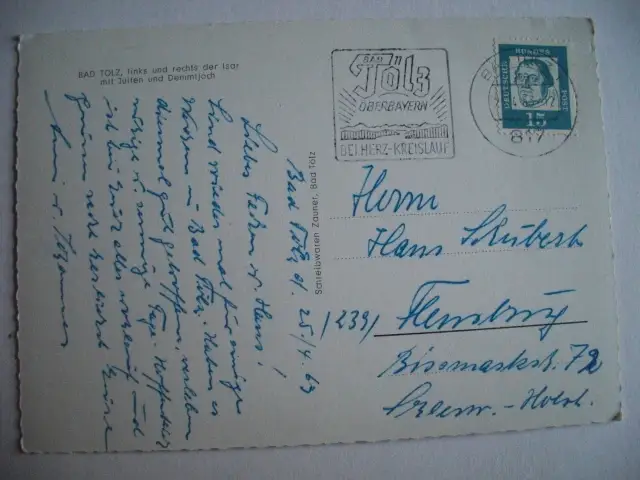 BAD TÖLZ, links und rechts der Isar
mit Juifen und Demmljoch
BAD
Tölz
OBERBAYERN
BEI HERZ-KREISLAUF
DEUTSCHE BUNDESPOST
15
817
Schreibwaren Zauner, Bad Tölz
Bad Tölz, d. 25./4. 63
Hans!
Sind wieder mal für einige
in Bad Tölz. Haben es
diesmal gut getroffen, verleben
sonnige Tage. Hoffentlich
ist bei Euch alles und
grüssen recht herzlichst Eure
Herrn
Hans Schubert
(239) Flensburg
Bismarckstr. 72
- Holst.